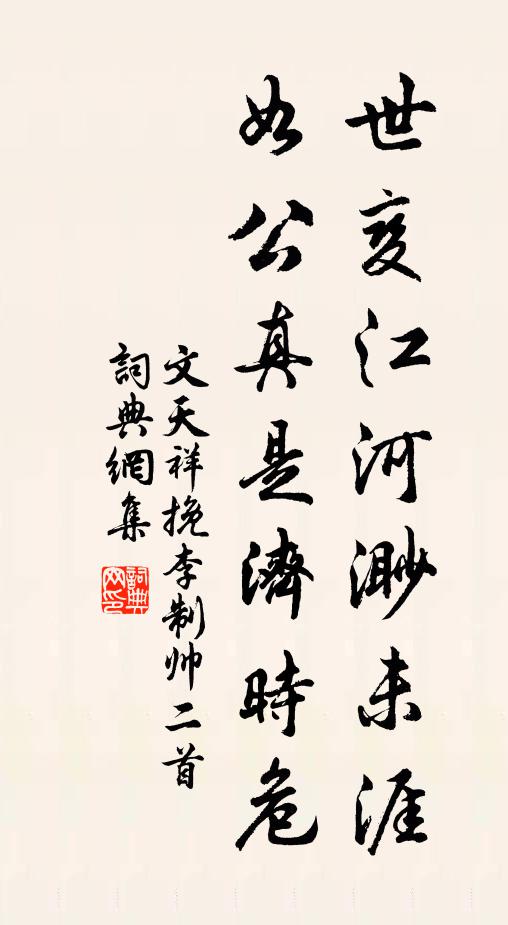 世变江河渺未涯
如公真是濟時危
文天祥挽李制帅二首
詞典網集
詞典网印